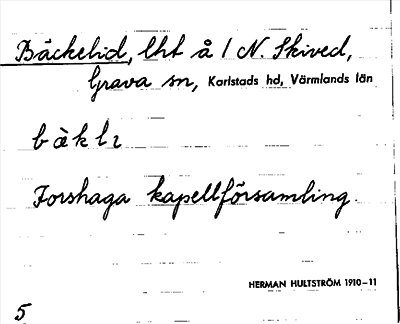 Bäckelid, lht å 1 N. Skived,
Grava sn, Karlstads hd, Värmlands län
bàklı
Forshaga kapellförsamling.
HERMAN HULTSTRÖM 1910–11
5